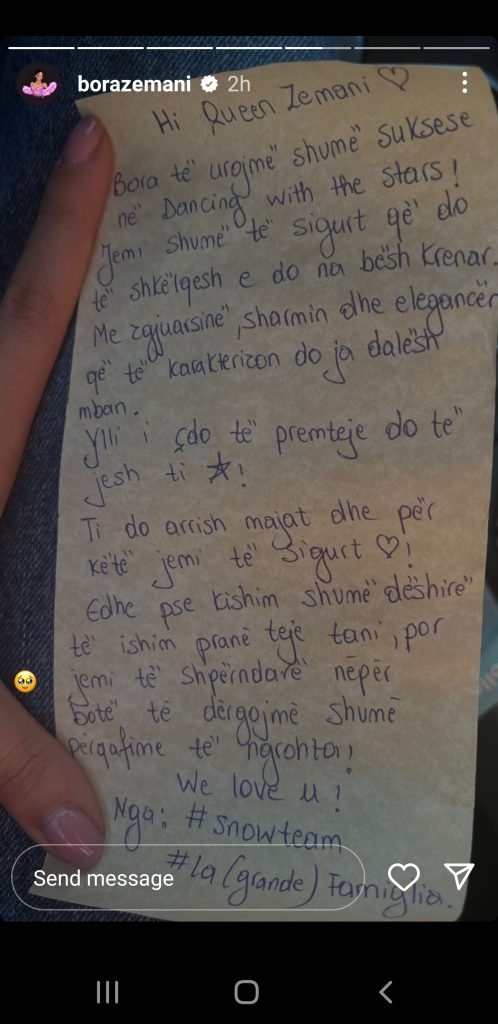 borazemani 2h
Hi Queen Zemani ♡
Bora të urojmë shumë suksese
në Dancing with the stars!
Jemi shumë të sigurt që do
të shkëlqesh e do na bësh krenar.
Me zgjuarsinë, sharmin dhe elegancën
që të karakterizon do ja dalësh
mban.
Ylli i çdo të premteje do të
jesh ti ☆!
Ti do arrish majat dhe për
këtë jemi të sigurt ♡!
Edhe pse kishim shumë dëshirë
të ishim pranë teje tani, por
jemi të shpërndarë nëpër
botë të dërgojmë shumë
përqafime të ngrohta!
We love u!
Nga: #snowteam
#la (grande) Famiglia.
Send message